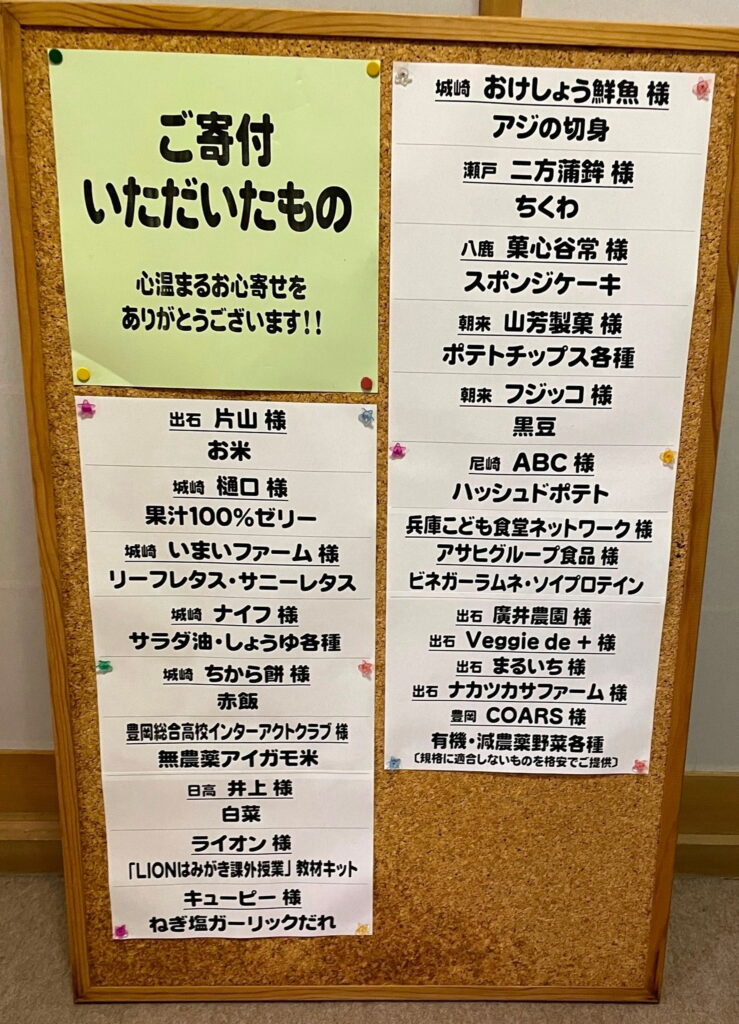 ご寄付
いただいたもの
心温まるお心寄せを
ありがとうございます!!
出石 片山 様
お米
城崎 樋口 様
果汁100%ゼリー
城崎 いまいファーム 様
リーフレタス・サニーレタス
城崎 ナイフ 様
サラダ油・しょうゆ各種
城崎 ちから餅 様
赤飯
豊岡総合高校インターアクトクラブ 様
無農薬アイガモ米
日高 井上 様
白菜
ライオン 様
「LIONはみがき課外授業」教材キット
キューピー 様
ねぎ塩ガーリックだれ
城崎 おけしょう鮮魚 様
アジの切身
瀬戸 二方蒲鉾 様
ちくわ
八鹿 菓心谷常 様
スポンジケーキ
朝来 山芳製菓 様
ポテトチップス各種
朝来 フジッコ 様
黒豆
尼崎 ABC 様
ハッシュドポテト
兵庫こども食堂ネットワーク 様
アサヒグループ食品 様
ビネガーラムネ・ソイプロテイン
出石 廣井農園 様
出石 Veggie de + 様
出石 まるいち 様
出石 ナカツカサファーム 様
豊岡 COARS 様
有機・減農薬野菜各種
〔規格に適合しないものを格安でご提供〕